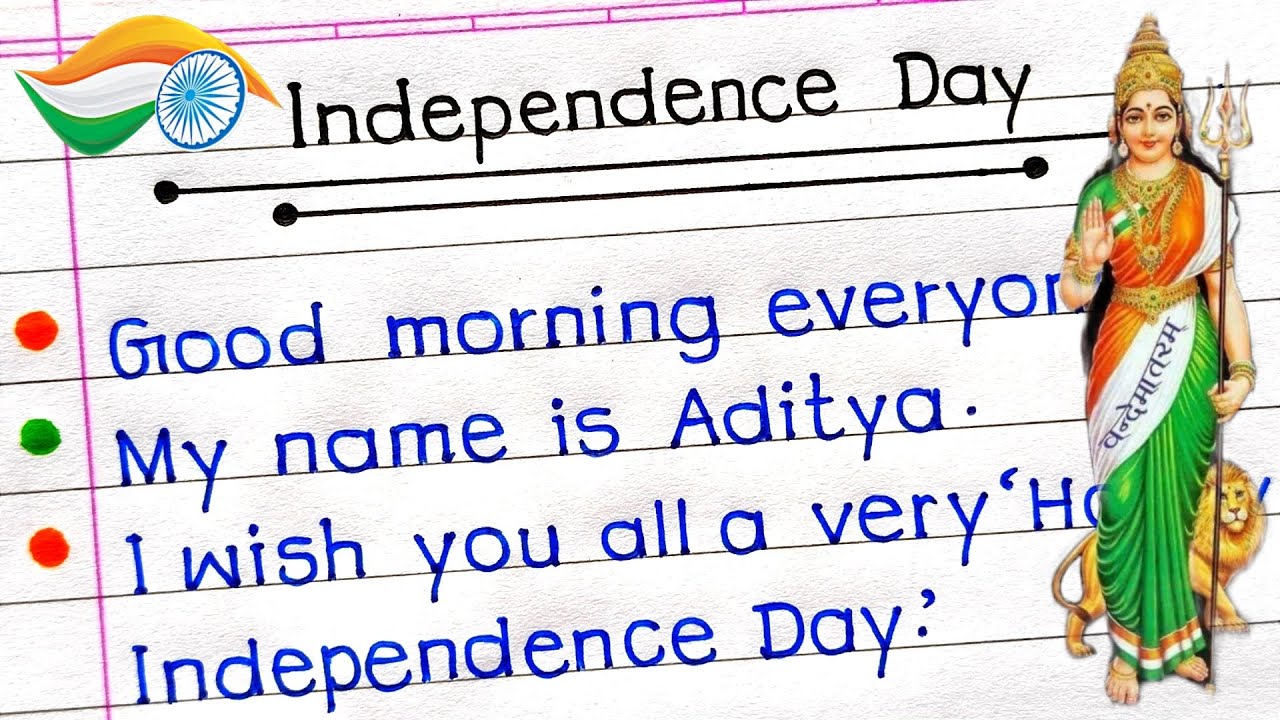 Independence Day
Good morning everyon
My name is Aditya.
I wish you all a very 'Ha
Independence Day.'
वन्देमातरम्